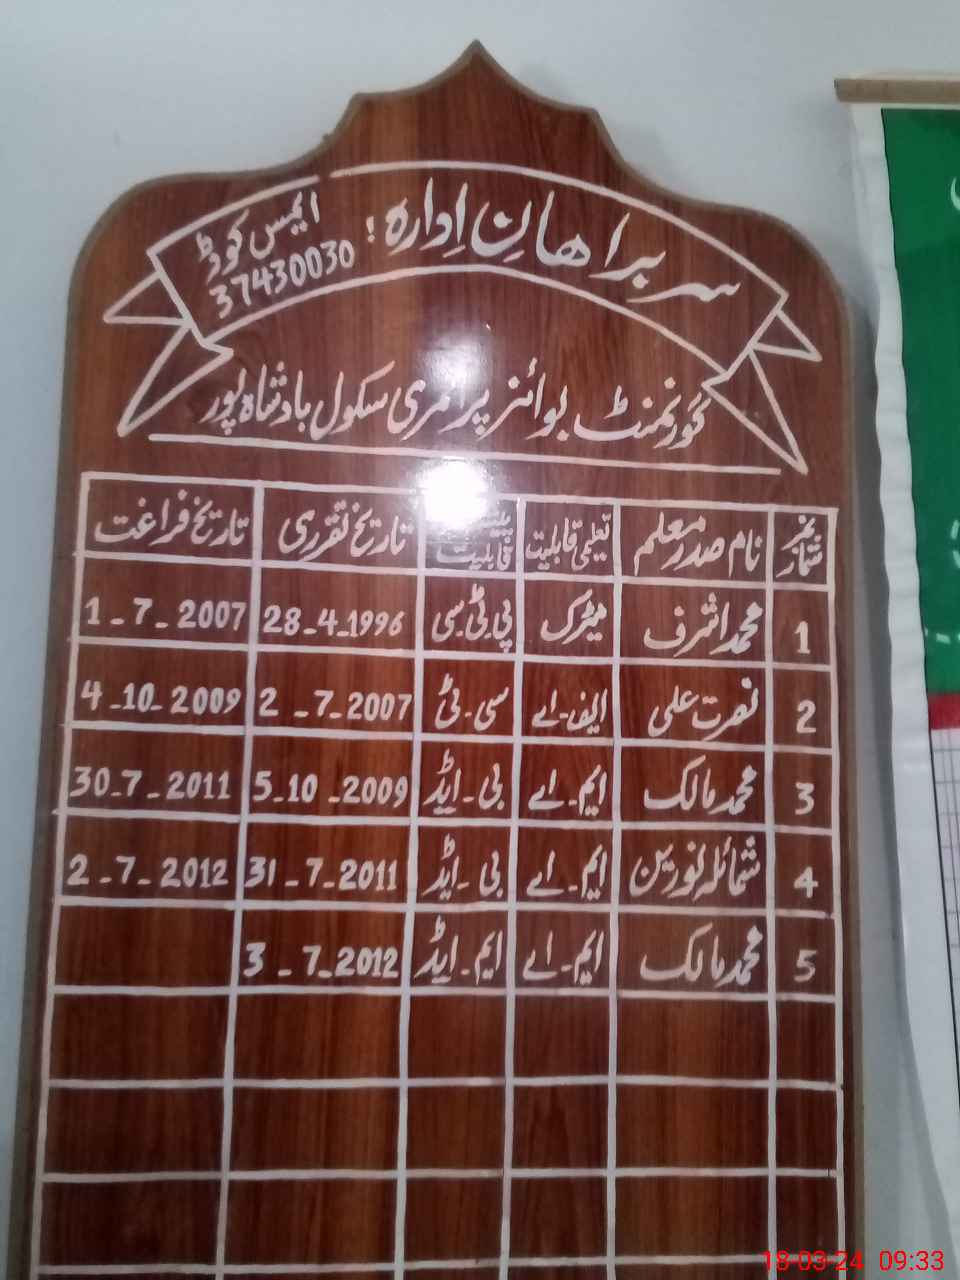 سربراھانِ ادارہ !
ایمس کوڈ
37430030
گورنمنٹ بوائز پرائمری سکول بادشاہ پور
نمبر شمار | نام صدر معلم | تعلیمی قابلیت | پیشہ قابلیت | تاریخ تقرری | تاریخ فراغت
1 | محمد اشرف | میٹرک | پی ٹی سی | 28-4-1996 | 1-7-2007
2 | نصرت علی | ایف-اے | سی-ٹی | 2-7-2007 | 4-10-2009
3 | محمد مالک | ایم-اے | بی-ایڈ | 5-10-2009 | 30-7-2011
4 | شمائلہ نورین | ایم-اے | بی-ایڈ | 31-7-2011 | 2-7-2012
5 | محمد مالک | ایم-اے | ایم-ایڈ | 3-7-2012
18-03-24 09:33